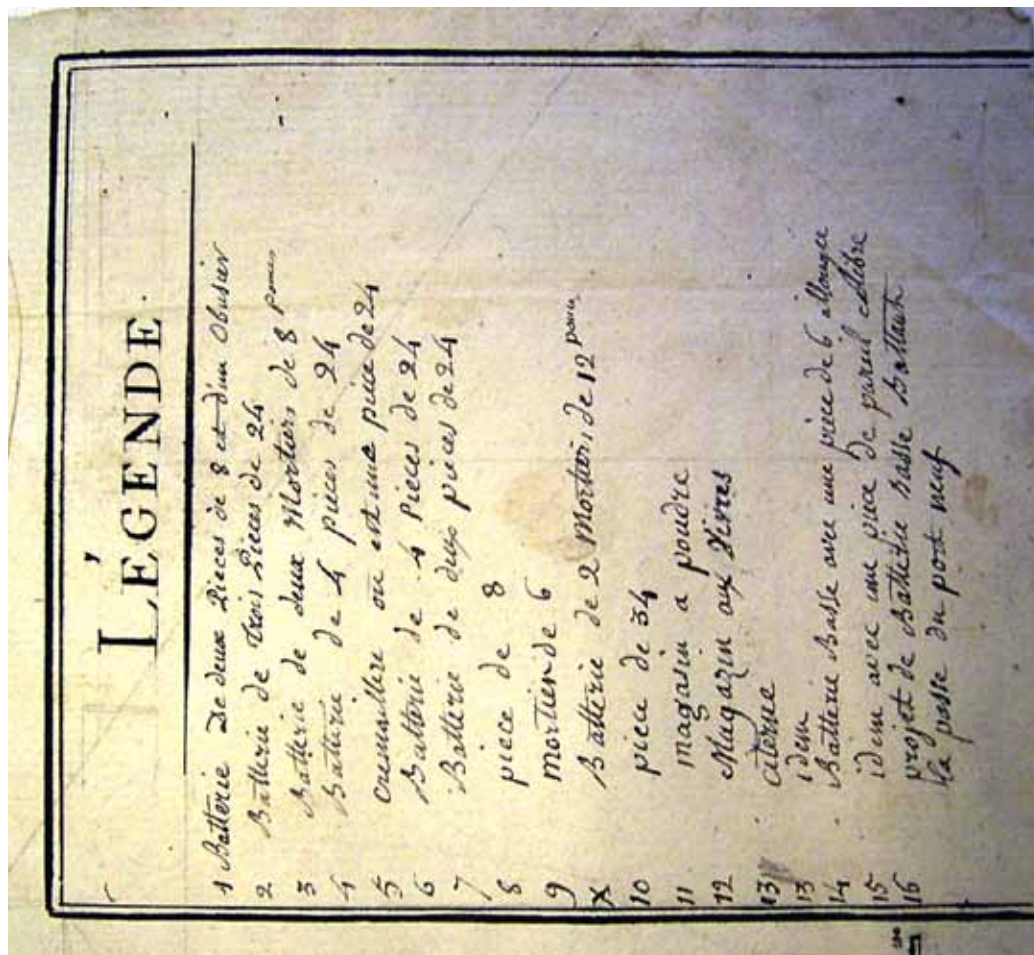 LÉGENDE
1 Batterie De deux Pieces de 8 et d'un Obusier
2 Batterie de trois Pieces de 24
3 Batterie de deux Mortiers de 8 pouces
4 Batterie de 4 pieces de 24
5 Cremaillere ou est une piece de 24
6 Batterie de 4 Pieces de 24
7 Batterie de deux pieces de 24
8 piece de 8
9 mortier de 6
X Batterie de 2 Mortiers de 12 pouces
10 piece de 34
11 magasin a poudre
12 Magazin aux Vivres
13 citerne
13 idem
14 Batterie Basse avec une piece de 6 allongee
15 idem avec une piece de pareil calibre
16 projet de Batterie basse Battante
la passe du port neuf